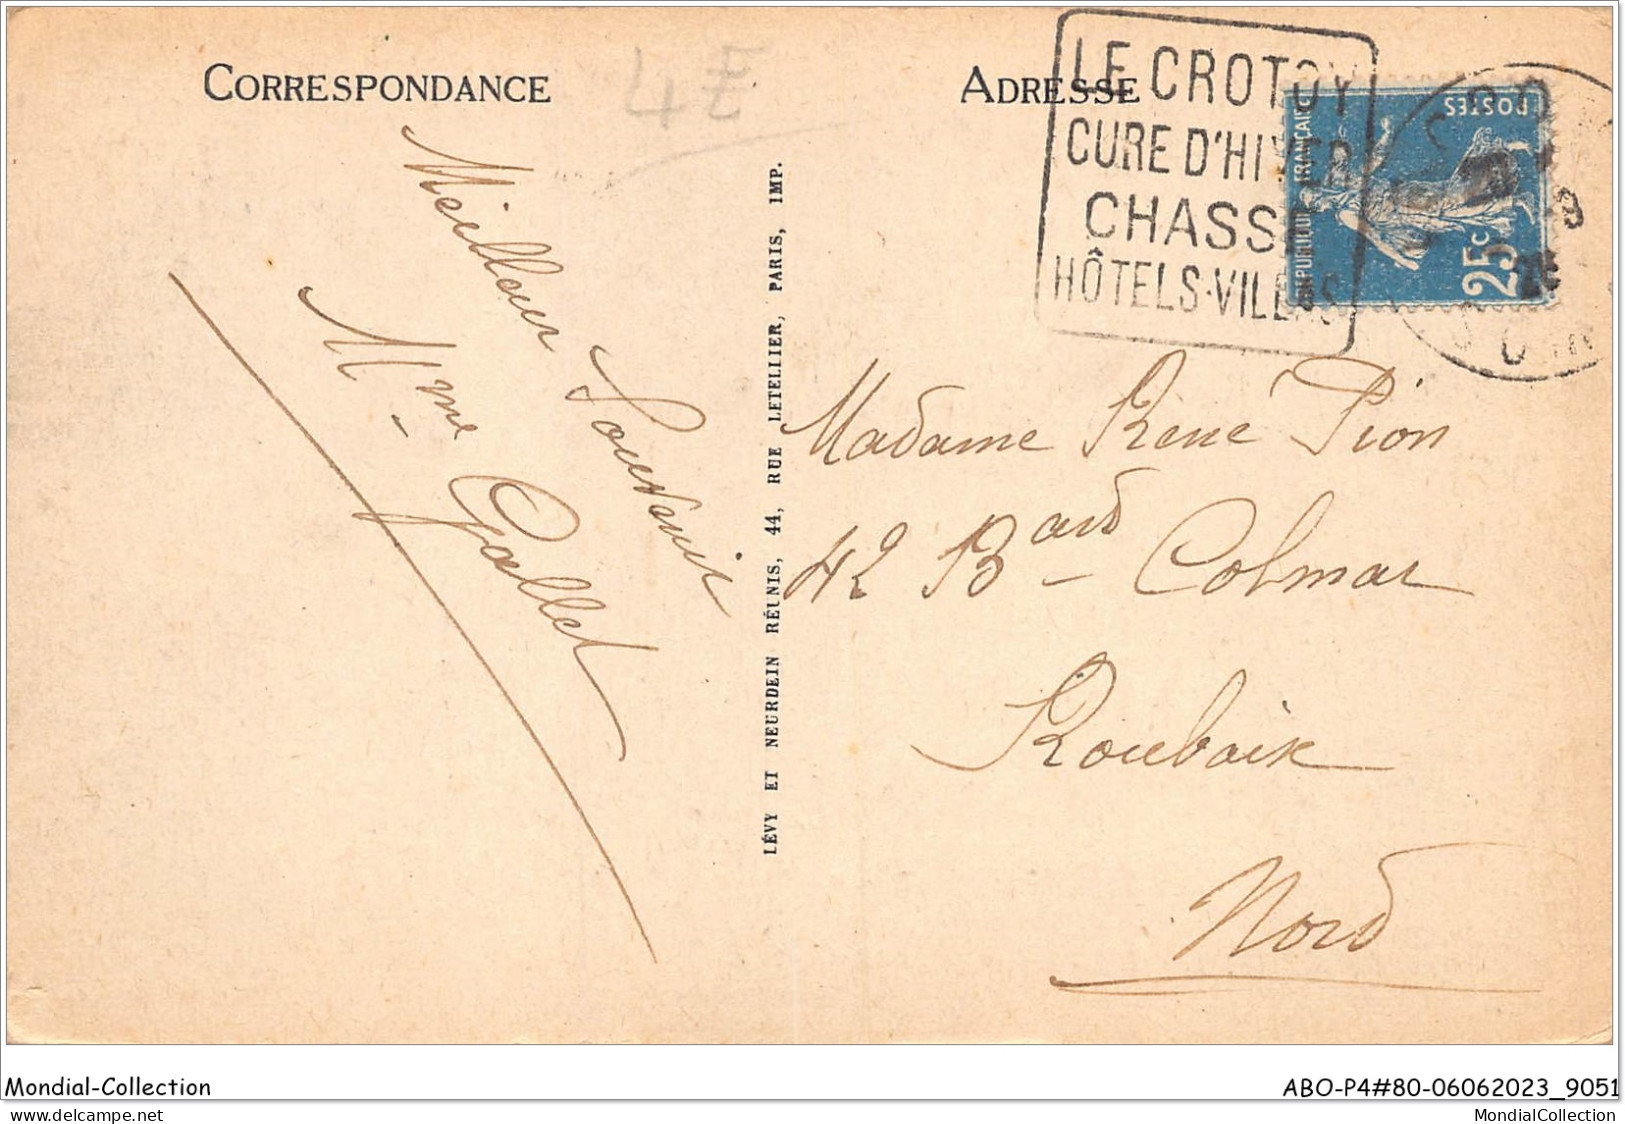 CORRESPONDANCE
4 E
Meilleur Souvenir
Mme Gallet
LÉVY ET NEURDEIN RÉUNIS, 44, RUE LETELIER, PARIS, IMP.
ADRESSE
LE CROTOY
CURE D'HIVER
CHASSE
HÔTELS-VILLAS
POSTES
REPUBLIQUE FRANÇAISE
25c
Madame René Pion
42 Bard Colmar
Roubaix
Nord
Mondial-Collection
ABO-P4#80-06062023_9051
MondialCollection.delcampe.net
MondialCollection